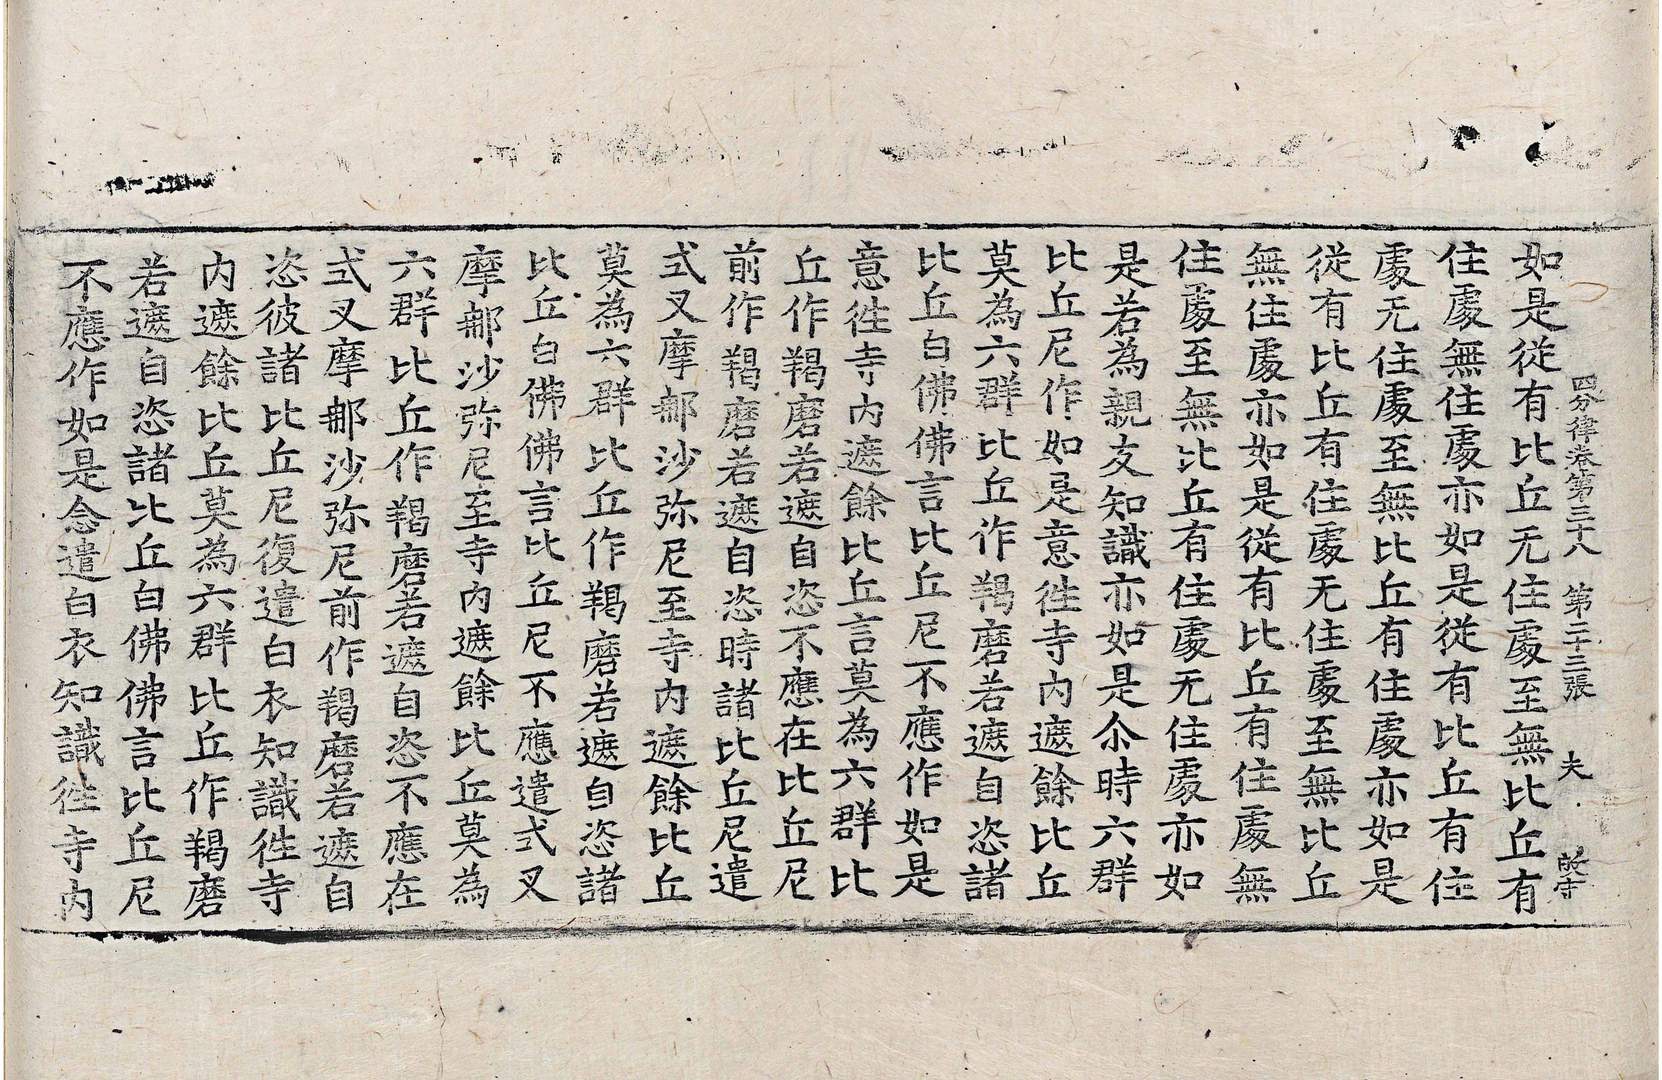 四分律卷第三十八 第二十三張 夫
如是從有比丘无住處至無比丘有
住處無住處亦如是從有比丘有住
處无住處至無比丘有住處亦如是
從有比丘有住處无住處至無比丘
無住處亦如是從有比丘有住處無
住處至無比丘有住處无住處亦如
是若為親友知識亦如是尒時六群
比丘尼作如是意徃寺內遮餘比丘
莫為六群比丘作羯磨若遮自恣諸
比丘白佛佛言比丘尼不應作如是
意徃寺內遮餘比丘言莫為六群比
丘作羯磨若遮自恣不應在比丘尼
前作羯磨若遮自恣時諸比丘尼遣
式叉摩那沙弥尼至寺內遮餘比丘
莫為六群比丘作羯磨若遮自恣諸
比丘白佛佛言比丘尼不應遣式叉
摩那沙弥尼至寺內遮餘比丘莫為
六群比丘作羯磨若遮自恣不應在
式叉摩那沙弥尼前作羯磨若遮自
恣彼諸比丘尼復遣白衣知識徃寺
內遮餘比丘莫為六群比丘作羯磨
若遮自恣諸比丘白佛佛言比丘尼
不應作如是念遣白衣知識徃寺內